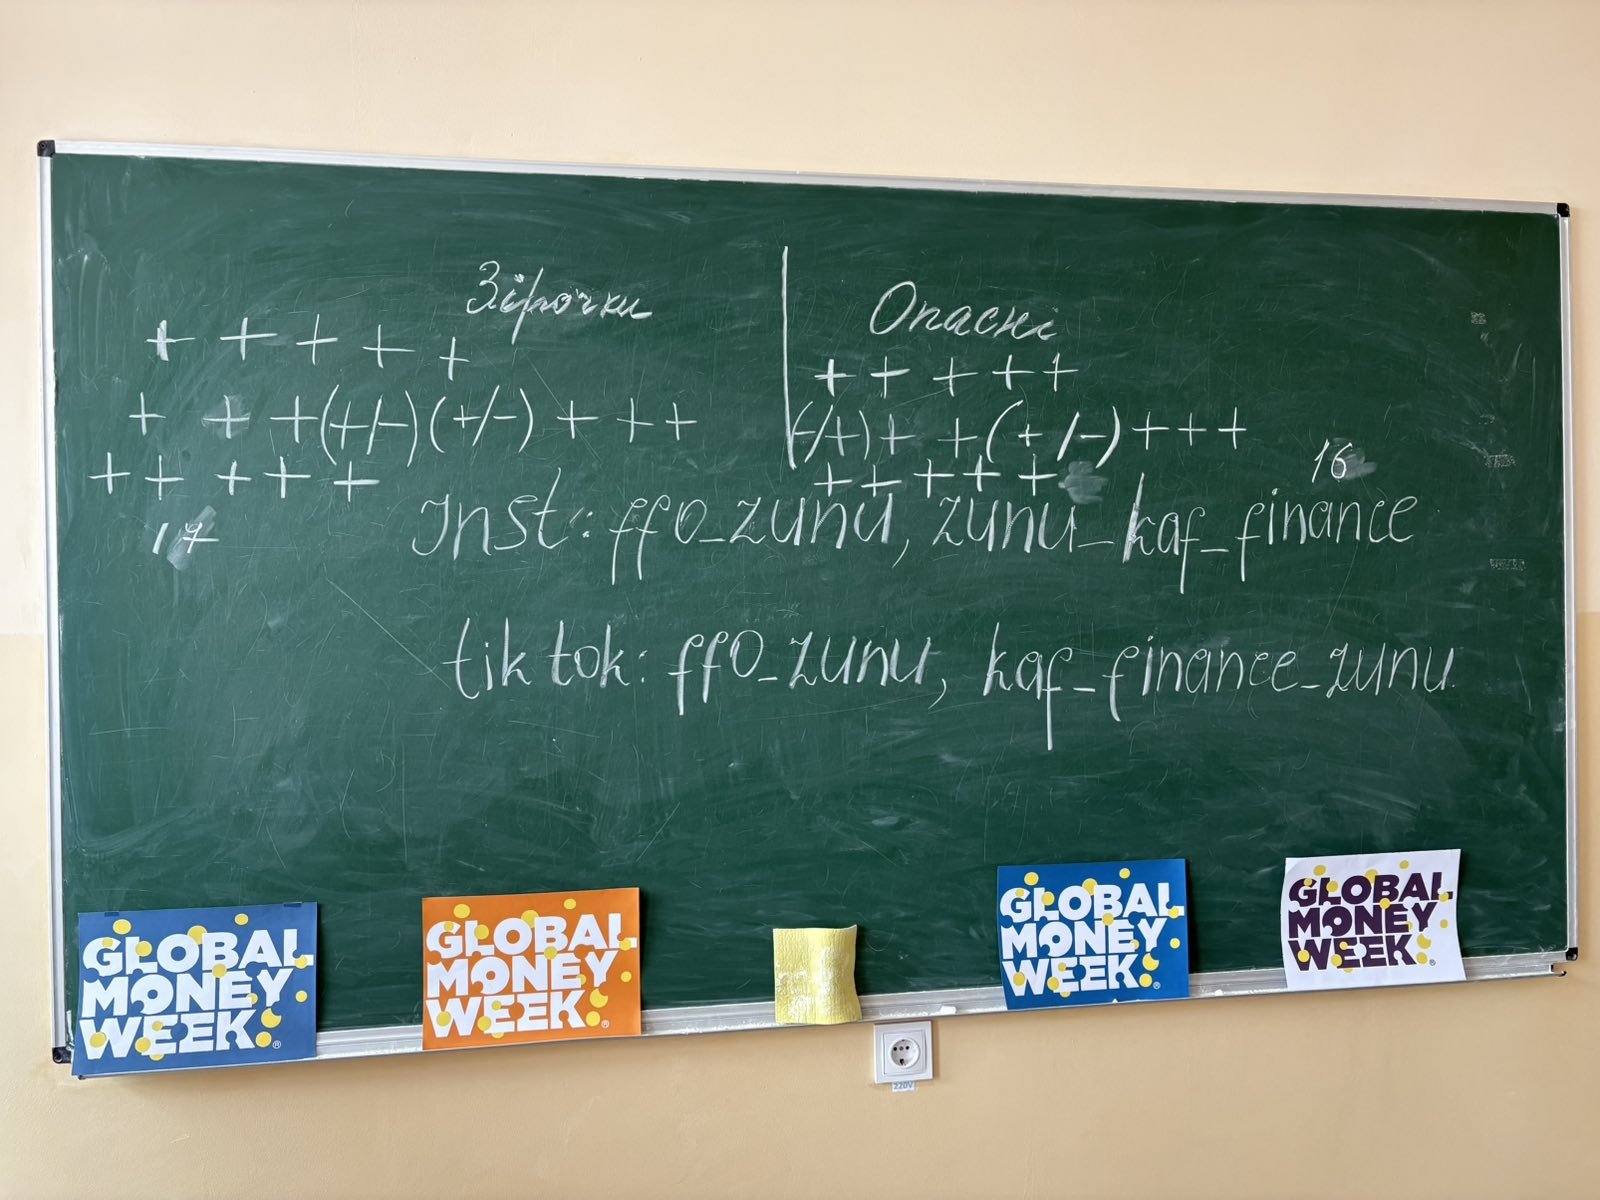 Зірочки
+ + + + +
+ + +(+/-)(+/-) + + +
+ + + + +
17
Опасні
+ + + + +
(-/+)+ +(+/-)+++
+ + + + +
16
Inst: ffo_zunu, zunu_kaf_finance
tik tok: ffo_zunu, kaf_finance_zunu
GLOBAL
MONEY
WEEK®
GLOBAL
MONEY
WEEK®
GLOBAL
MONEY
WEEK®
GLOBAL
MONEY
WEEK®
220V